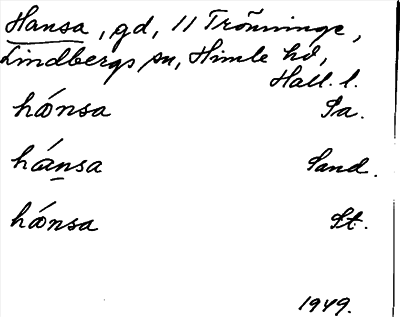 Hansa, gd, 11 Trönninge,
Lindbergs sn, Himle hd,
Hall. l.
hánsa Sa.
hánsa Sand.
hánsa St.
1949.